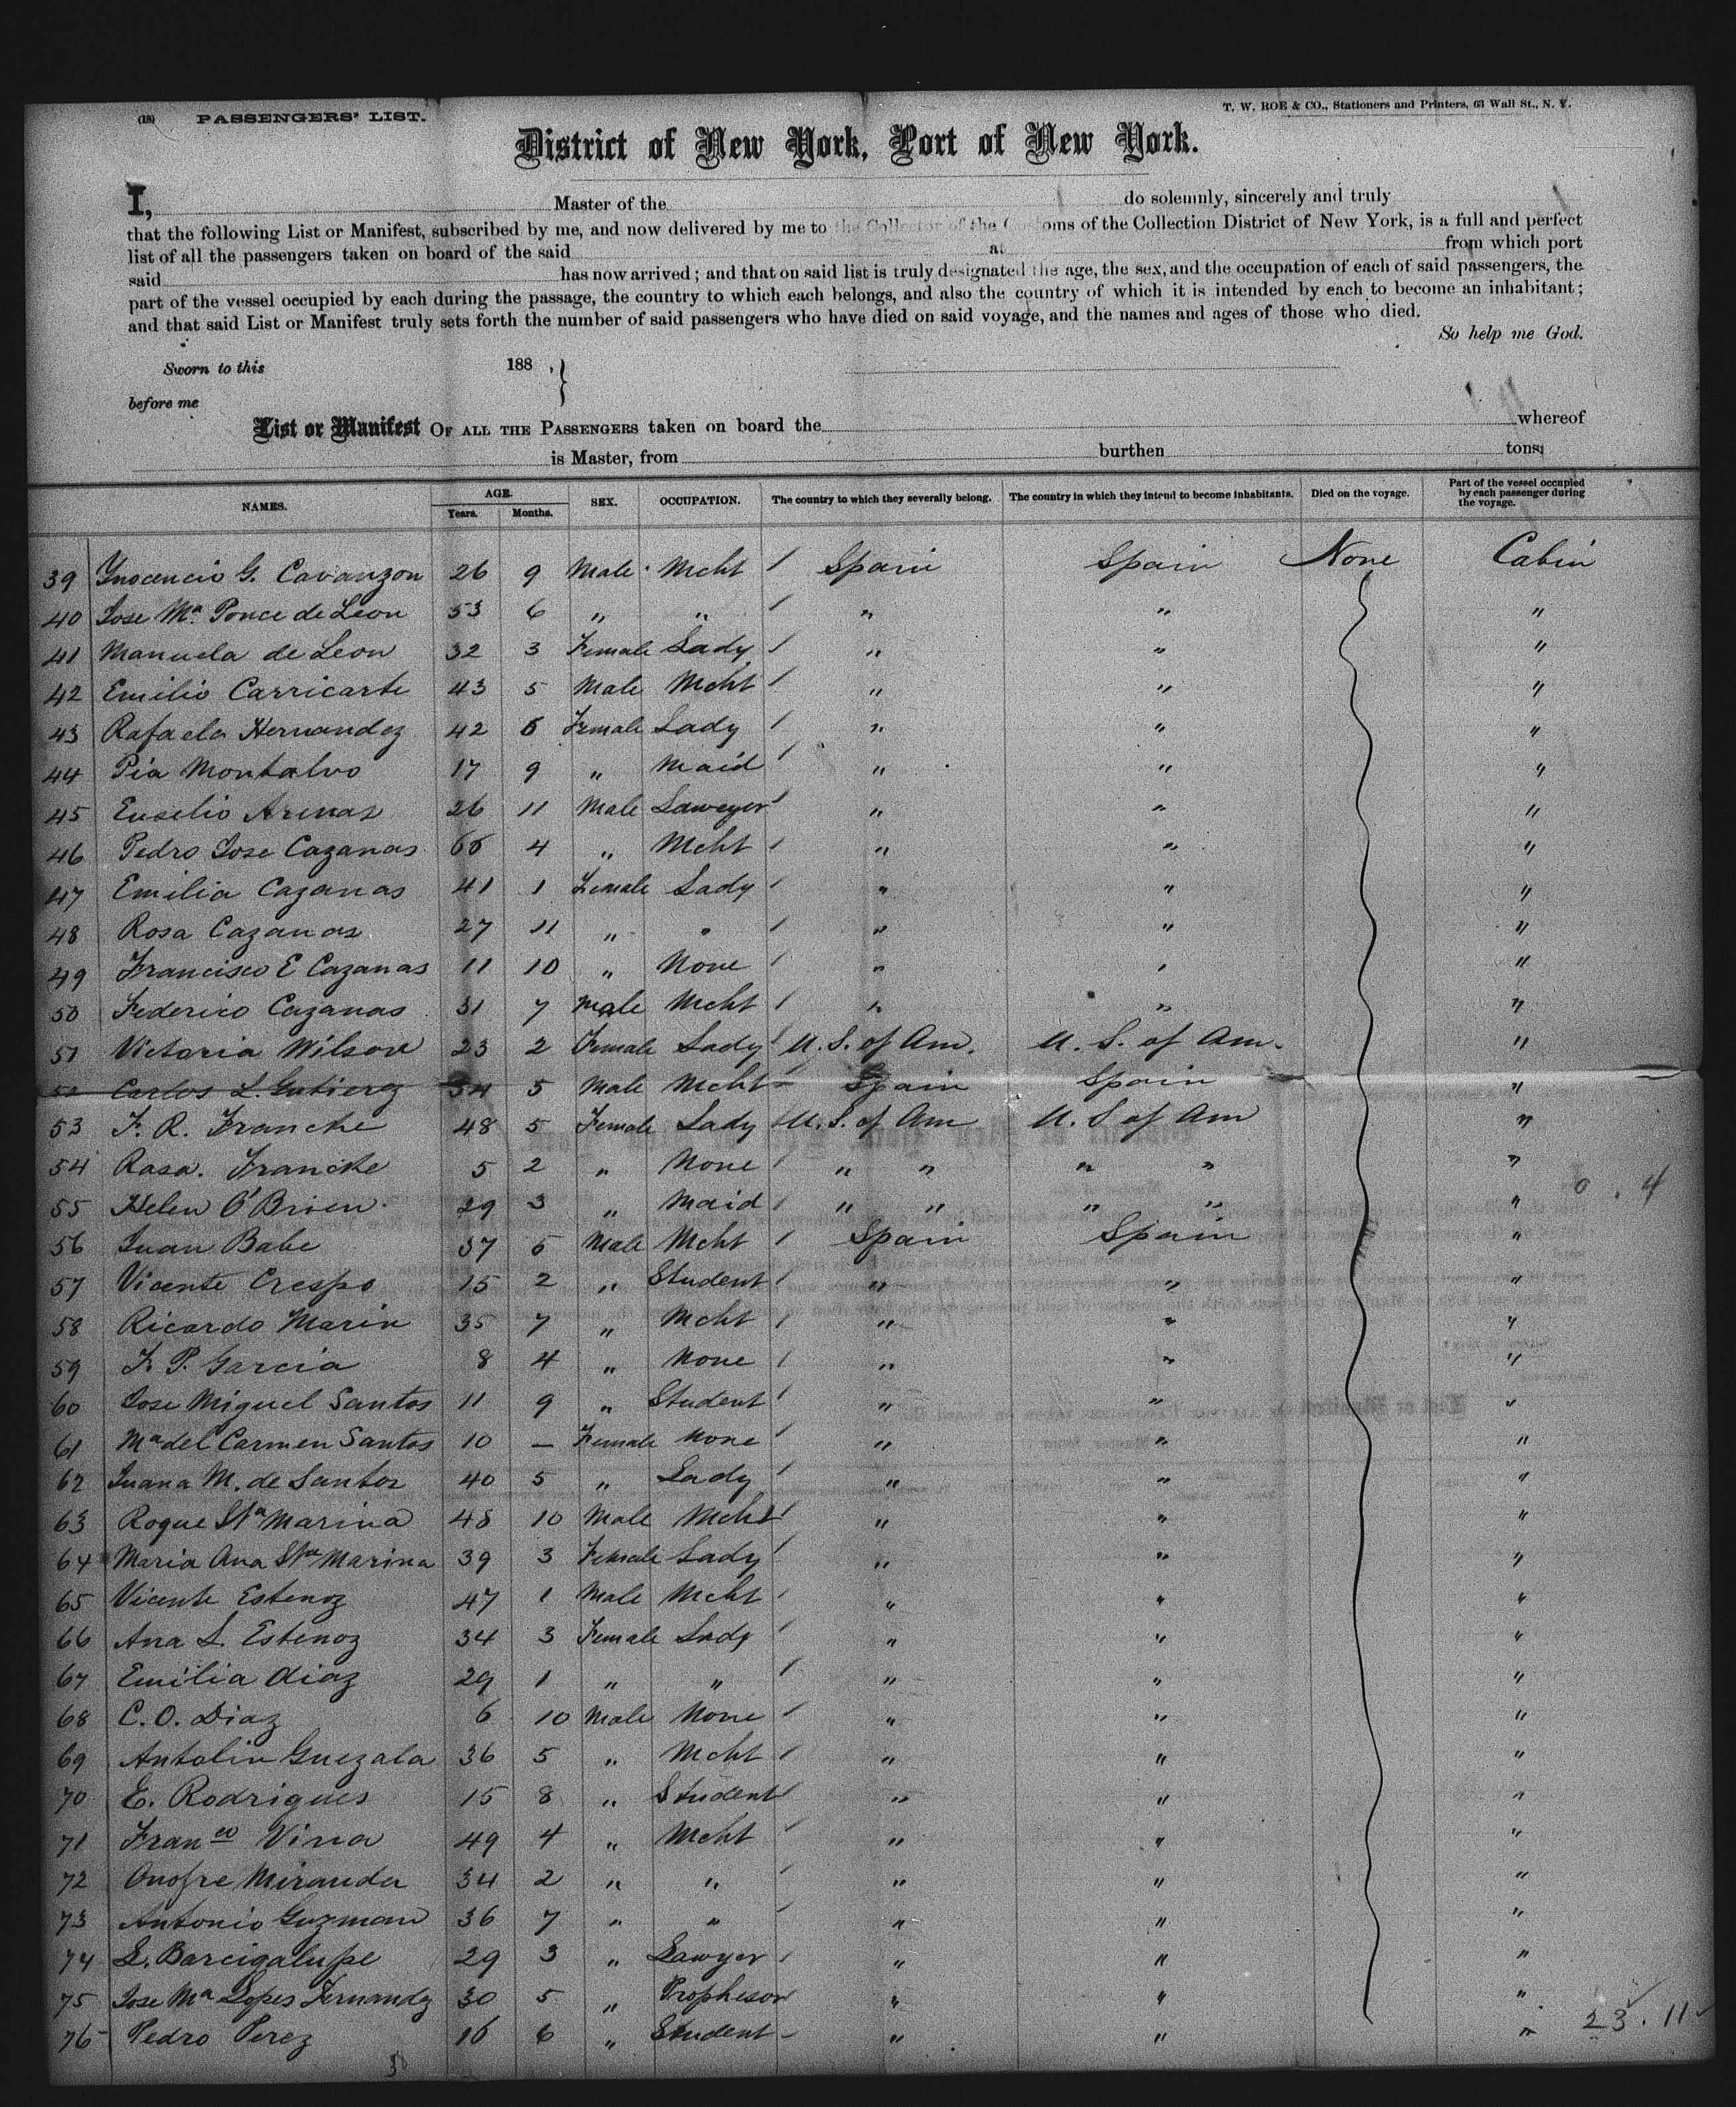 (18) PASSENGERS' LIST.
T. W. ROE & CO., Stationers and Printers, 63 Wall St., N. Y.
District of New York, Port of New York.
I, Master of the do solemnly, sincerely and truly
that the following List or Manifest, subscribed by me, and now delivered by me to the Collector of the Customs of the Collection District of New York, is a full and perfect
list of all the passengers taken on board of the said at from which port
said has now arrived; and that on said list is truly designated the age, the sex, and the occupation of each of said passengers, the
part of the vessel occupied by each during the passage, the country to which each belongs, and also the country of which it is intended by each to become an inhabitant;
and that said List or Manifest truly sets forth the number of said passengers who have died on said voyage, and the names and ages of those who died.
So help me God.
Sworn to this 188 , }
before me
List or Manifest OF ALL THE PASSENGERS taken on board the whereof
is Master, from burthen tons;
NAMES. AGE. Years. Months. SEX. OCCUPATION. The country to which they severally belong. The country in which they intend to become inhabitants. Died on the voyage. Part of the vessel occupied by each passenger during the voyage.
39 Ynocencio G. Cavanzon 26 9 Male Mcht / Spain Spain None Cabin
40 Jose Ma. Ponce de Leon 53 6 " " / " " "
41 Manuela de Leon 32 3 Female Lady / " " "
42 Emilio Carricarte 43 5 Male Mcht / " " "
43 Rafaela Hernandez 42 5 Female Lady / " " "
44 Pia Montalvo 17 9 " Maid / " " "
45 Euselio Arenas 26 11 Male Laweyer / " " "
46 Pedro Jose Cazanas 4 " Mcht / " " "
47 Emilia Cazanas 41 1 Female Lady / " " "
48 Rosa Cazanas 27 11 " " / " " "
49 Francisco E Cazanas 11 10 " None / " " "
50 Federico Cazanas 31 7 Male Mcht / " " "
51 Victoria Wilson 23 2 Female Lady / U. S. of Am. U. S. of Am. "
52 Carlos L. Gutierez 34 5 Male Mcht - Spain Spain "
53 F. R. Francke 48 5 Female Lady / U. S. of Am U. S of Am "
54 Rasa. Francke 5 2 " None / " " " " "
55 Helen O'Brien. 29 3 " Maid / " " " " " 0 . 4
56 Juan Babe 37 5 Male Mcht / Spain Spain "
57 Vicente Crespo 15 2 " Student / " " "
58 Ricardo Marin 35 7 " Mcht / " " "
59 F. P. Garcia 8 4 " None / " " "
60 Jose Miguel Santos 11 9 " Student / " " "
61 Ma del Carmen Santos 10 — Female None / " " "
62 Juana M. de Santos 40 5 " Lady / " " "
63 Roque Sta Marina 48 10 Male Mcht / " " "
64 Maria Ana Sta Marina 39 3 Female Lady / " " "
65 Vicente Estenoz 47 1 Male Mcht / " " "
66 Ana L. Estenoz 34 3 Female Lady / " " "
67 Emilia Diaz 29 1 " " / " " "
68 C. O. Diaz 6 10 Male None / " " "
69 Antolin Guezala 36 5 " Mcht / " " "
70 E. Rodrigues 15 8 " Student / " " "
71 Franco Vina 49 4 " Mcht / " " "
72 Onofre Miranda 34 2 " " / " " "
73 Antonio Guzman 36 7 " " / " " "
74 L. Barcigalupe 29 3 " Lawyer / " " "
75 Jose Ma Lopes Fernandz 30 5 " Prophesor " " "
76 Pedro Perez 16 6 " Student - " " " 23 . 11